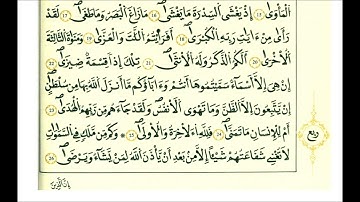 الْمَأْوَىٰ ١٥ إِذْ يَغْشَى السِّدْرَةَ مَا يَغْشَىٰ ١٦ مَا زَاغَ الْبَصَرُ وَمَا طَغَىٰ ١٧ لَقَدْ
رَأَىٰ مِنْ ءَايَٰتِ رَبِّهِ الْكُبْرَىٰ ١٨ أَفَرَءَيْتُمُ اللَّٰتَ وَالْعُزَّىٰ ١٩ وَمَنَوٰةَ الثَّالِثَةَ
الْأُخْرَىٰ ٢٠ أَلَكُمُ الذَّكَرُ وَلَهُ الْأُنثَىٰ ٢١ تِلْكَ إِذًا قِسْمَةٌ ضِيزَىٰ ٢٢
إِنْ هِيَ إِلَّا أَسْمَاءٌ سَمَّيْتُمُوهَا أَنتُمْ وَءَابَاؤُكُم مَّا أَنزَلَ اللَّهُ بِهَا مِن سُلْطَٰنٍ
إِن يَتَّبِعُونَ إِلَّا الظَّنَّ وَمَا تَهْوَى الْأَنفُسُ وَلَقَدْ جَاءَهُم مِّن رَّبِّهِمُ الْهُدَىٰ ٢٣
أَمْ لِلْإِنسَٰنِ مَا تَمَنَّىٰ ٢٤ فَلِلَّهِ الْءَاخِرَةُ وَالْأُولَىٰ ٢٥ وَكَم مِّن مَّلَكٍ فِي السَّمَٰوَٰتِ
لَا تُغْنِي شَفَٰعَتُهُمْ شَيْئًا إِلَّا مِن بَعْدِ أَن يَأْذَنَ اللَّهُ لِمَن يَشَاءُ وَيَرْضَىٰ ٢٦
ربع
إِنَّ الَّذِينَ